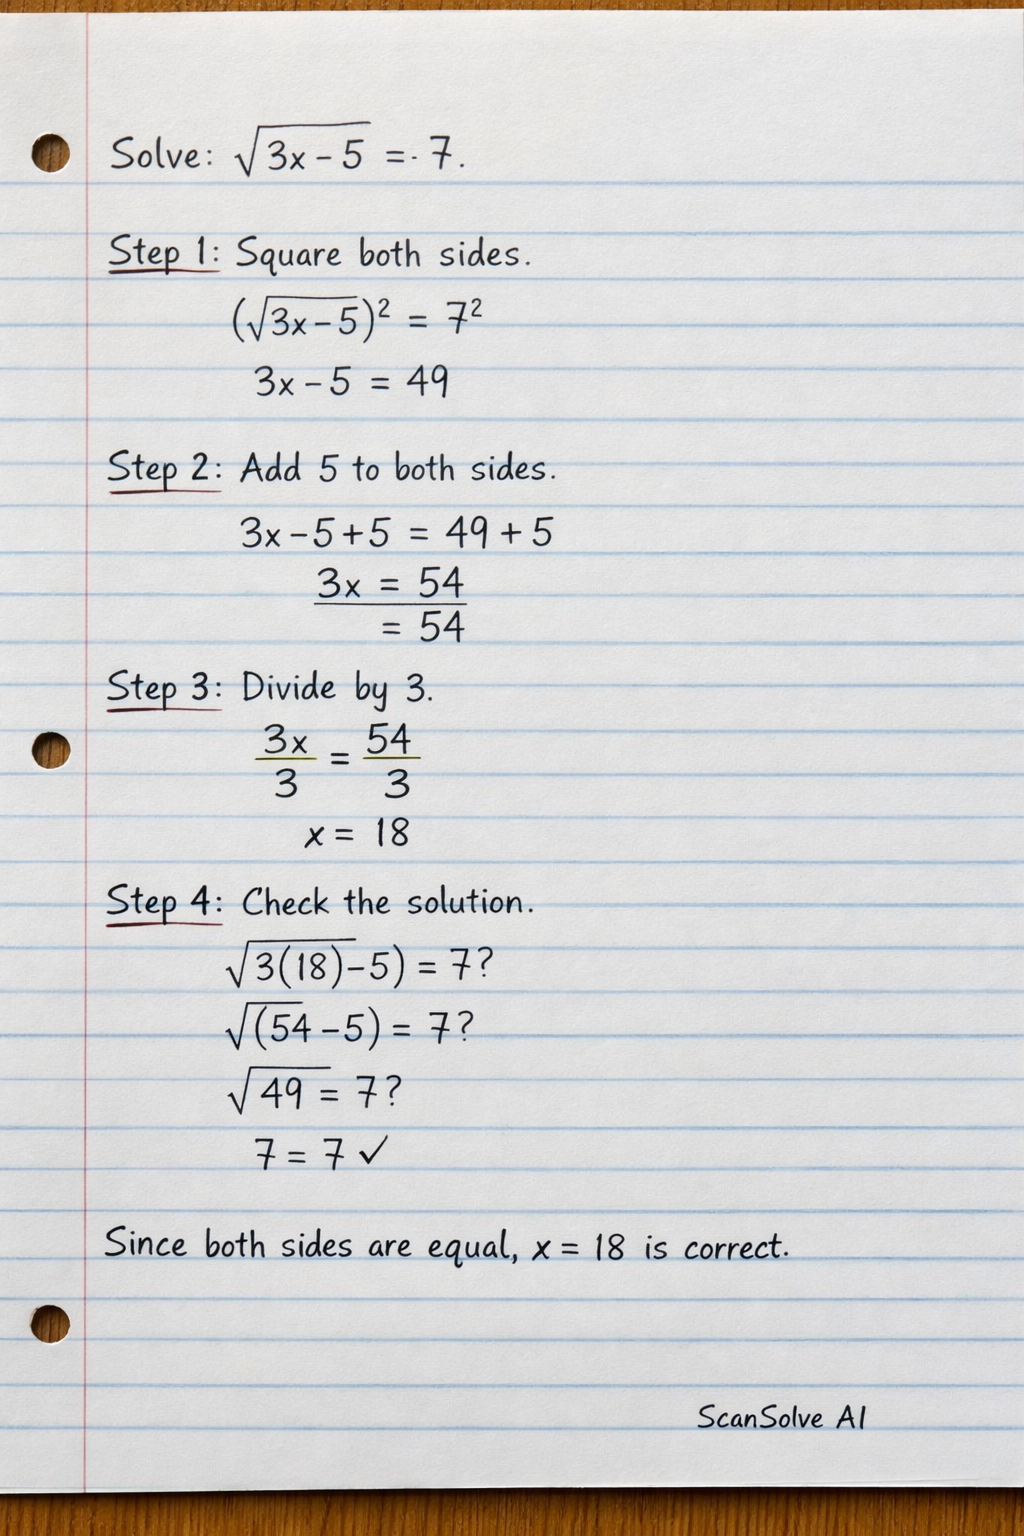 Solve: √3x - 5 =· 7.
Step 1: Square both sides.
(√3x - 5)² = 7²
3x - 5 = 49
Step 2: Add 5 to both sides.
3x - 5 + 5 = 49 + 5
3x = 54
= 54
Step 3: Divide by 3.
3x/3 = 54/3
x = 18
Step 4: Check the solution.
√3(18) - 5) = 7?
√(54 - 5) = 7?
√49 = 7?
7 = 7 ✓
Since both sides are equal, x = 18 is correct.
ScanSolve AI